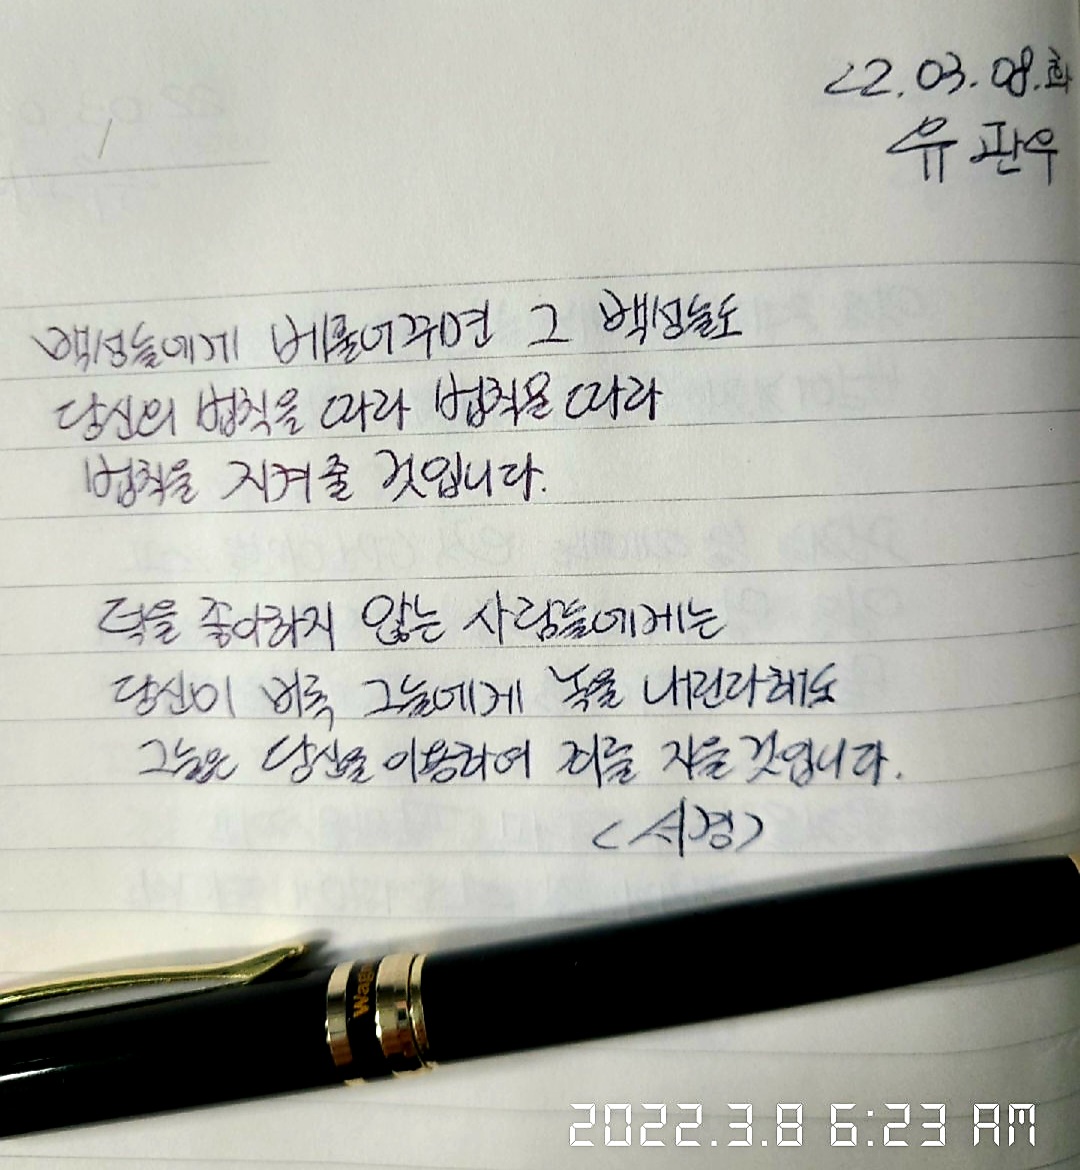 22.03.08.화
유판우
백성들에게 베풀어주면 그 백성들도
당신의 법칙을 따라 법칙을 따라
법칙을 지켜줄 것입니다.
덕을 좋아하지 않는 사람들에게는
당신이 비록 그들에게 녹을 내린다해도
그들은 당신을 이용하여 죄를 지을 것입니다.
<서경>
2022.3.8 6:23 AM